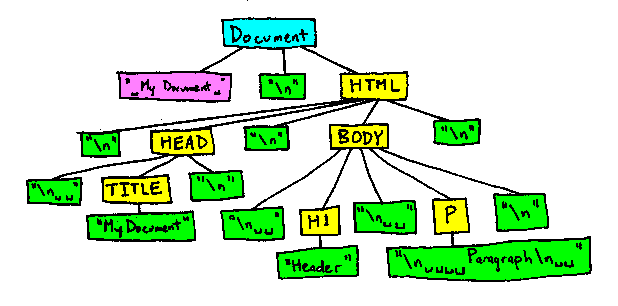 Document
"␣My Document␣"
"\n"
HTML
"\n"
HEAD
"\n"
BODY
"\n"
"\n␣␣"
TITLE
"\n"
"My Document"
"\n␣␣"
H1
"\n␣␣"
P
"\n"
"Header"
"\n␣␣␣␣Paragraph\n␣␣"